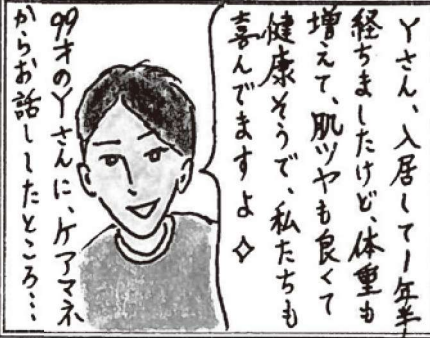 Yさん、入居して1年半
経ちましたけど、体重も
増えて、肌ツヤも良くて
健康そうで、私たちも
喜んでますよ◇
99才のYさんに、ケアマネ
からお話ししたところ…